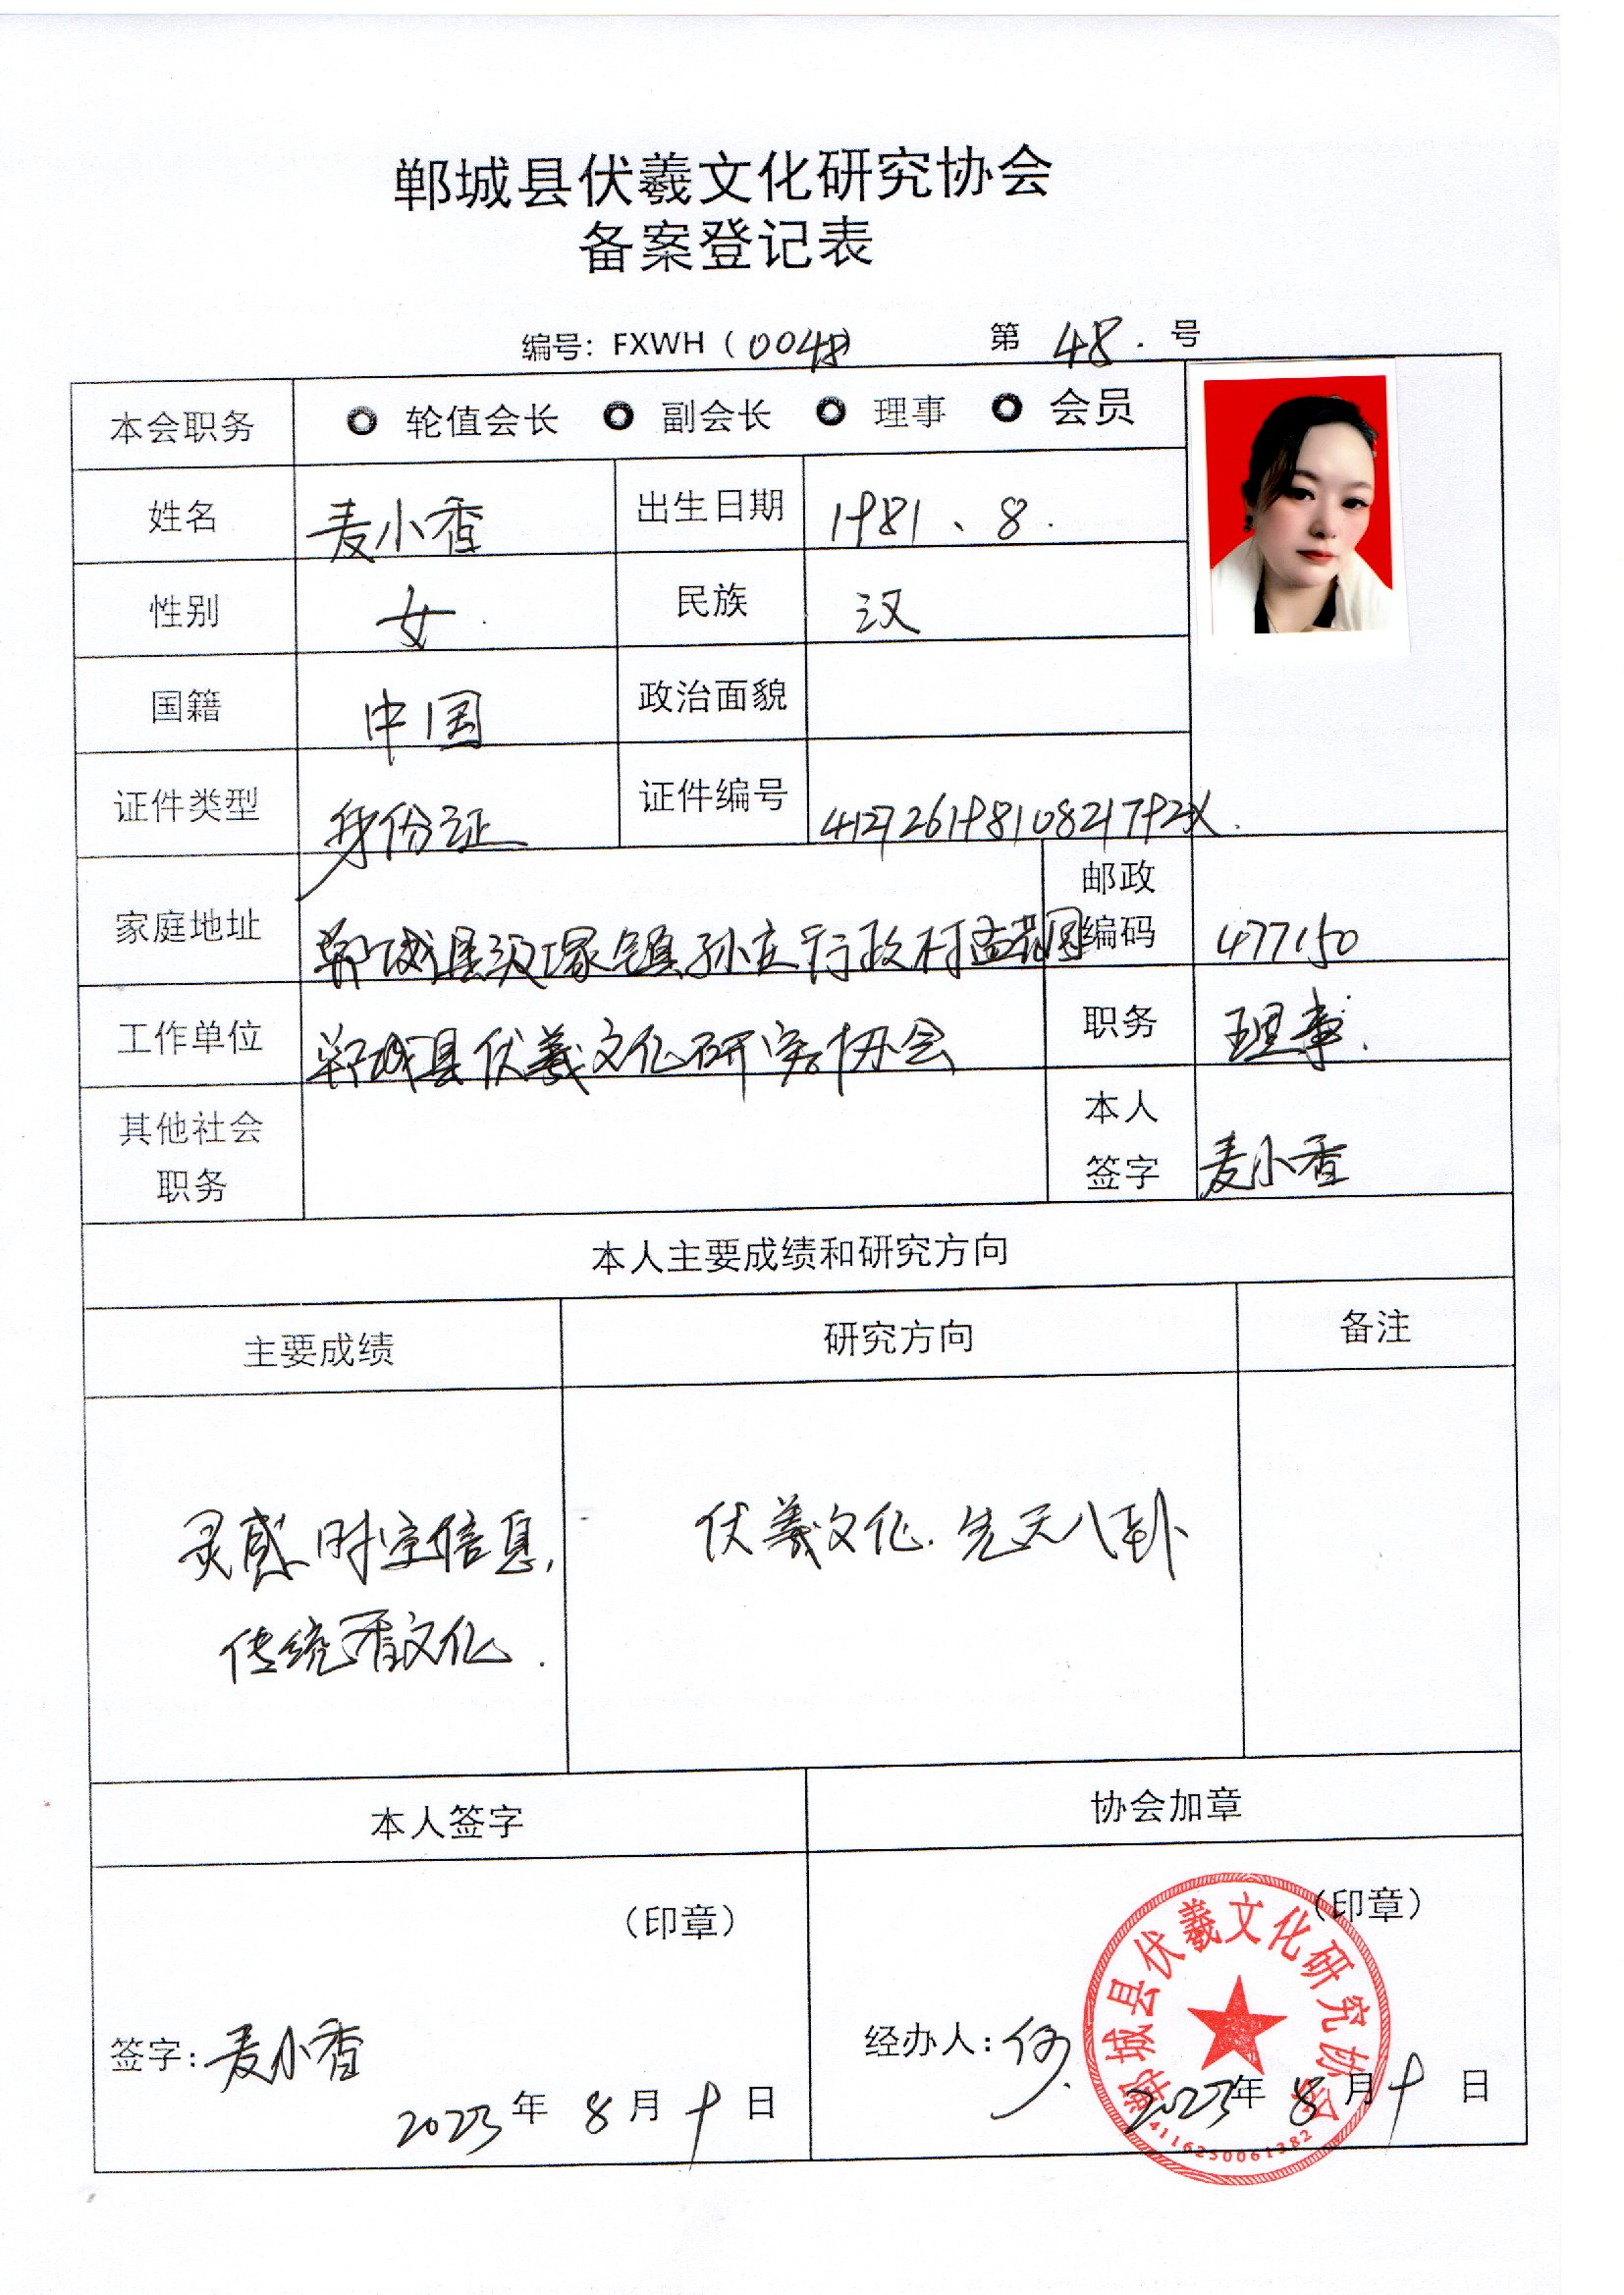 郸城县伏羲文化研究协会
备案登记表
编号：FXWH（0048） 第 48. 号
本会职务 轮值会长 副会长 理事 会员
姓名 麦小香 出生日期 1981、8.
性别 女 民族 汉
国籍 中国 政治面貌
证件类型 身份证 证件编号 41272619810821792X
家庭地址 郸城县汲冢镇孙庄行政村 邮政编码 477150
工作单位 郸城县伏羲文化研究协会 职务 理事.
其他社会职务 本人签字 麦小香
本人主要成绩和研究方向
主要成绩 研究方向 备注
灵感时空信息, 伏羲文化.先天八卦
传统香文化.
本人签字 协会加章
（印章） （印章）
签字：麦小香 经办人：何
2023年 8月 9日 2023年 8月 9日
郸城县伏羲文化研究协会
4116250061382